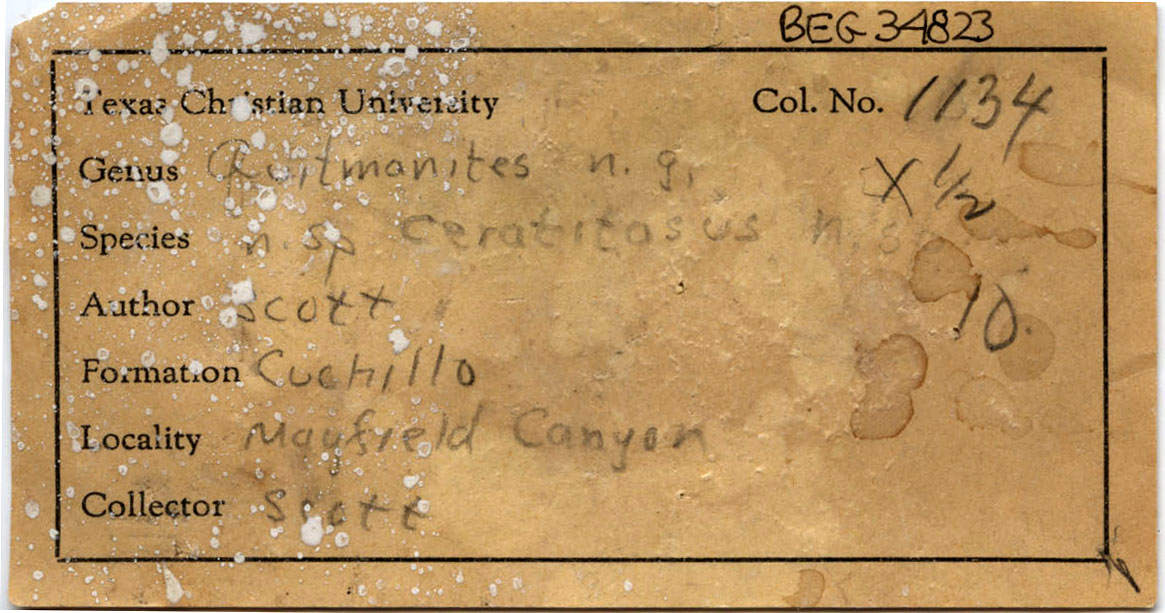 BEG 34823
Texas Christian University Col. No. 1134
Genus Quitmanites n. g. X 1/2
Species n. sp ceratitosus n. sp
Author Scott 10.
Formation Cuchillo
Locality Mayfield Canyon
Collector Scott